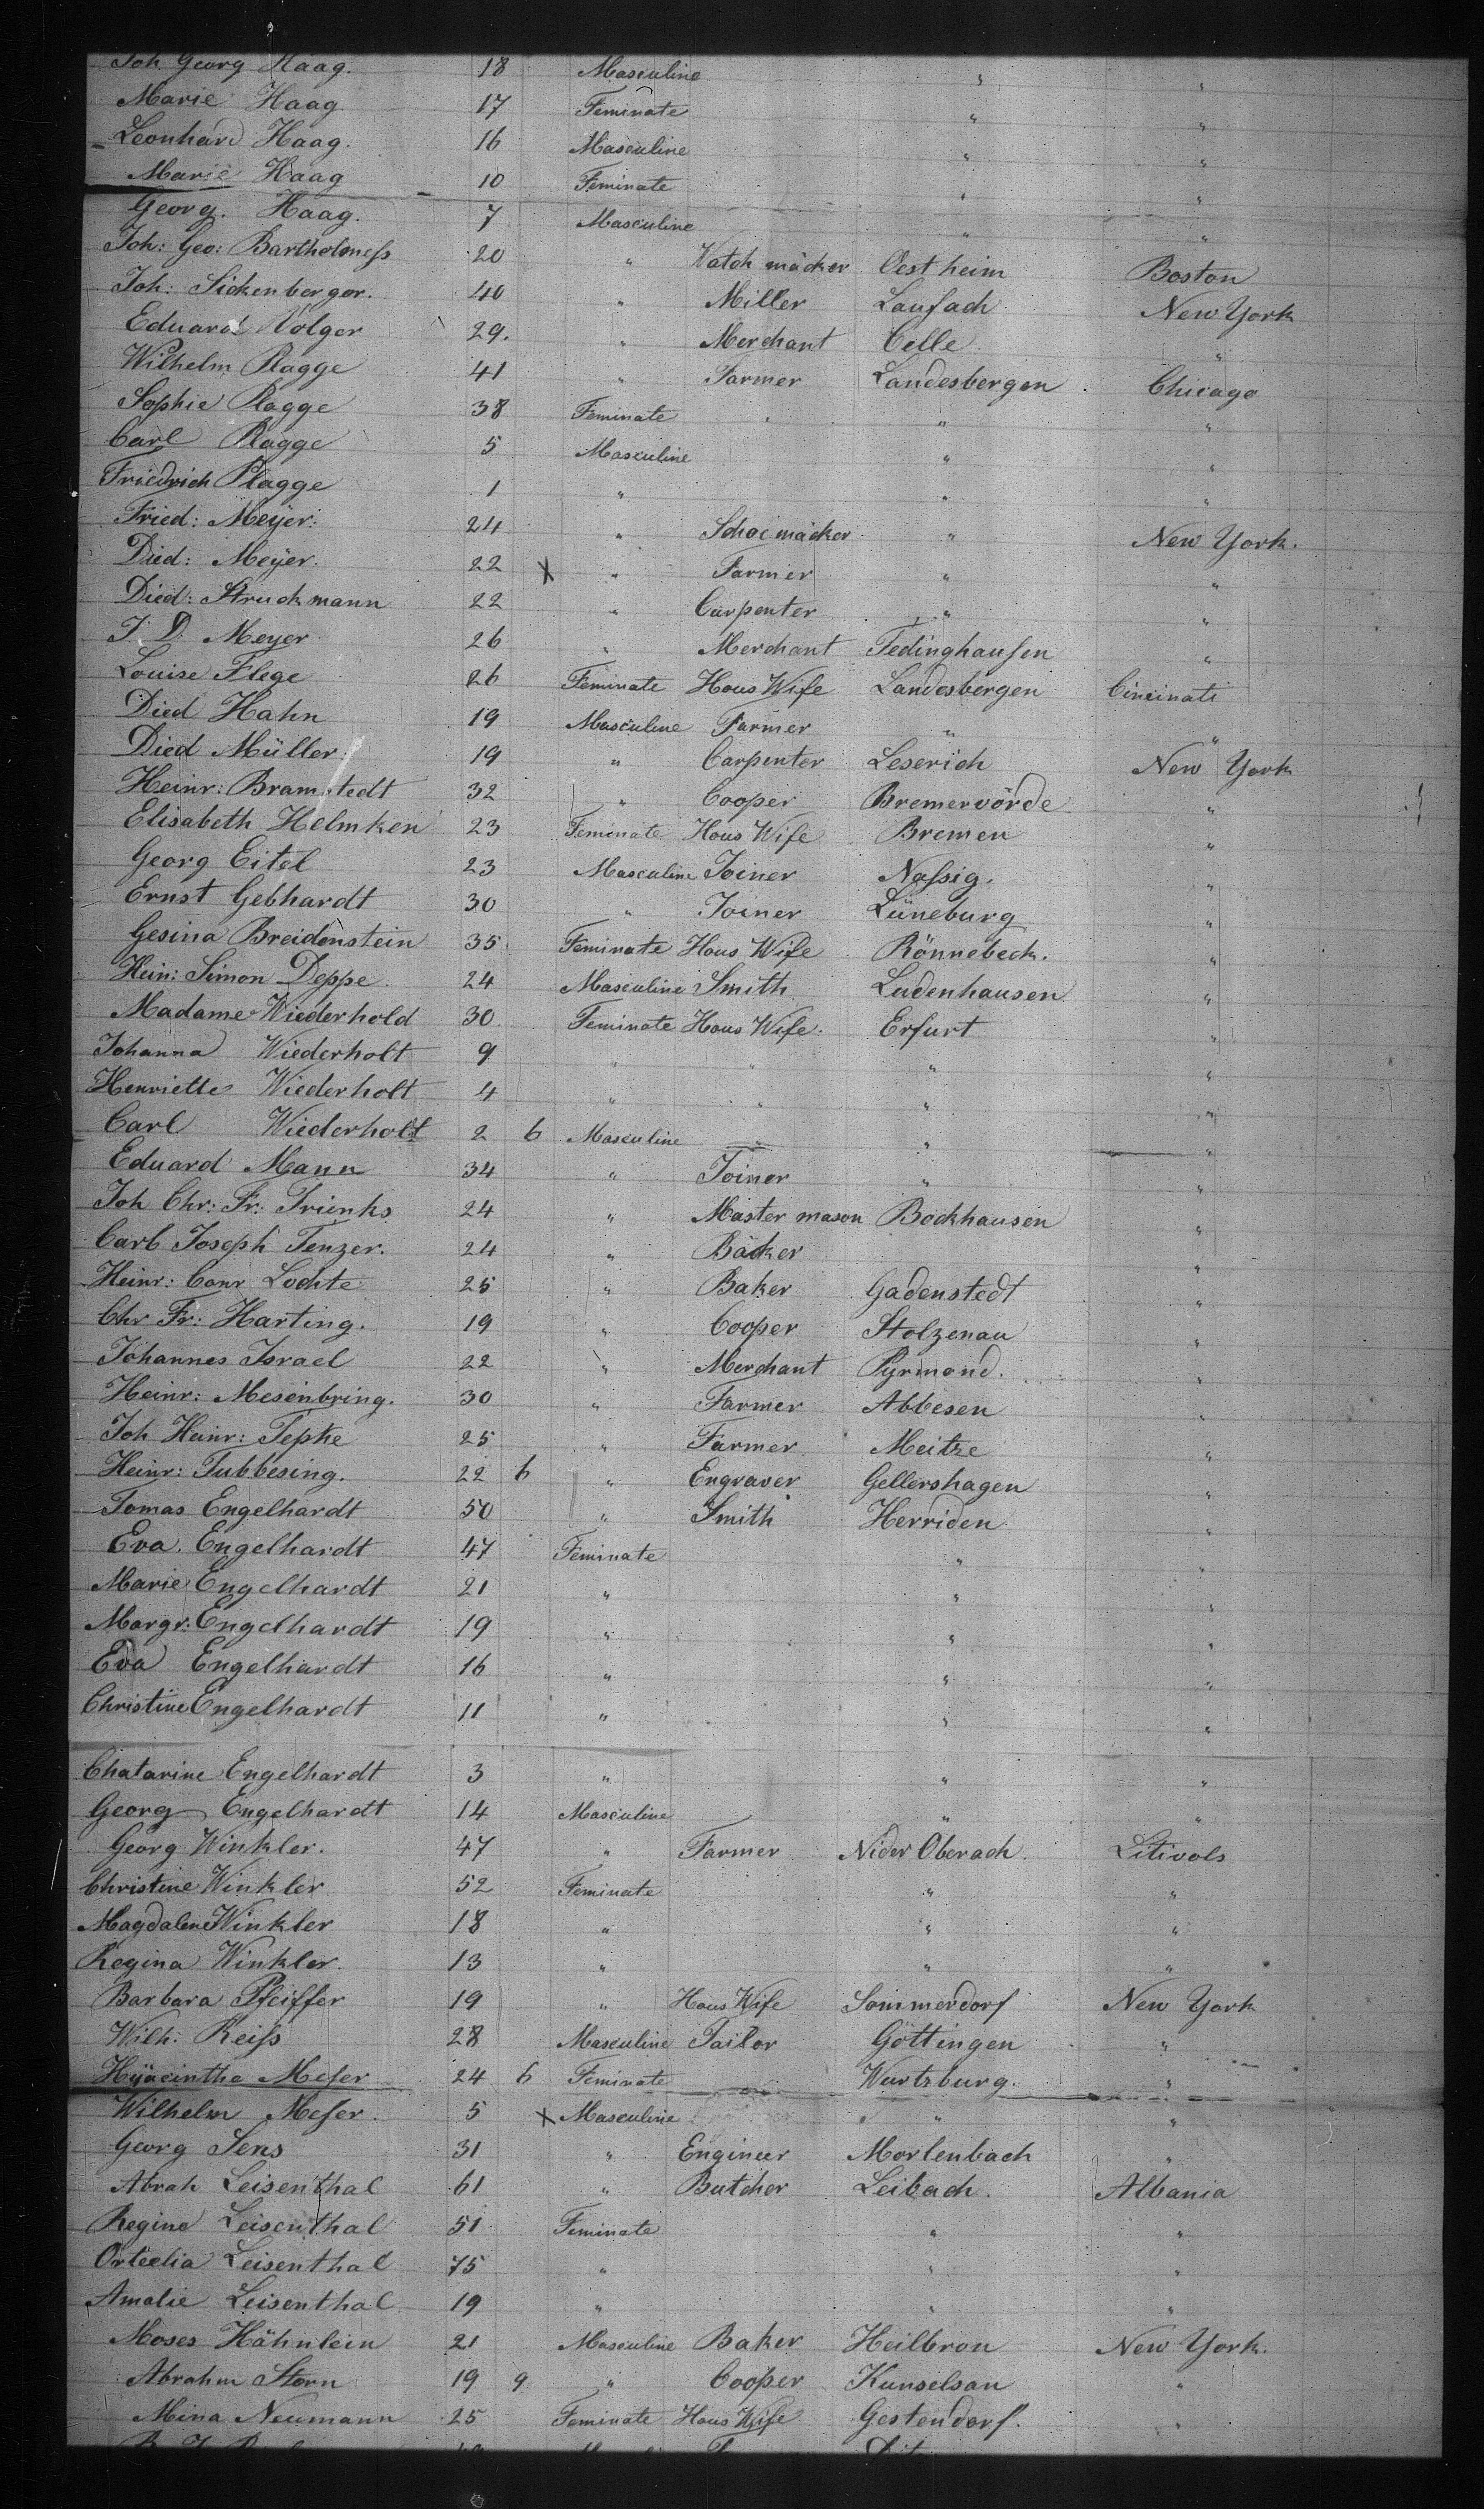 Joh Georg Haag. 18 Masculine " "
Marie Haag 17 Feminate " "
Leonhard Haag. 16 Masculine " "
Marie Haag 10 Feminate " "
Georg. Haag. 7 Masculine " "
Joh: Geo: Bartholomess 20 " Watch mäcker Oestheim Boston
Joh: Sickenberger. 40 " Miller Laufach New York
Eduard Völger 29. " Merchant Celle "
Wilhelm Plagge 41 " Farmer Landesbergen Chicago
Sophie Plagge 38 Feminate " " "
Carl Plagge 5 Masculine " "
Friedrich Plagge 1 " " "
Fried: Meyer: 24 " Schoemäcker " New York.
Died: Meyer. 22 X " Farmer " "
Died: Struckmann 22 " Carpenter " "
J. D. Meyer 26 " Merchant Tedinghausen "
Louise Flege 26 Feminate Hous Wife Landesbergen Cincinati
Died Hahn 19 Masculine Farmer " "
Died Müller. 19 " Carpenter Leserich New York
Heinr: Bramstedt 32 " Cooper Bremervörde "
Elisabeth Helmken 23 Feminate Hous Wife Bremen "
Georg Eitel 23 Masculine Joiner Nassig. "
Ernst Gebhardt 30 " Joiner Lüneburg "
Gesina Breidenstein 35. Feminate Hous Wife Rönnebeck. "
Hein: Simon Deppe. 24 Masculine Smith Ludenhausen "
Madame Wiederhold 30. Feminate Hous Wife. Erfurt "
Johanna Wiederholt 9 " " " "
Henriette Wiederholt 4 " " " "
Carl Wiederholt 2 6 Masculine " " "
Eduard Mann 34 " Joiner " "
Joh Chr: Fr: Trienks 24 " Master mason Bockhausen "
Carl Joseph Tenzer. 24 " Bäcker "
Heinr: Conr Lochte 25 " Baker Gadenstedt "
Chr Fr: Harting. 19 " Cooper Stolzenau "
Johannes Israel 22 " Merchant Pyrmond. "
Heinr: Mesenbring. 30 " Farmer Abbesen "
Joh Heinr: Tepke 25 " Farmer Meitze "
Heinr: Tubbesing. 22 6 " Engraver Gellershagen "
Tomas Engelhardt 50 " Smith Herriden "
Eva. Engelhardt 47 Feminate " "
Marie Engelhardt 21 " " "
Margr: Engelhardt 19 " " "
Eva Engelhardt 16 " " "
Christine Engelhardt 11 " " "
Chatarine Engelhardt 3 " " "
Georg Engelhardt 14 Masculine " "
Georg Winkler. 47 " Farmer Nider Oberach. Litivols
Christine Winkler 52 Feminate " "
Magdalene Winkler 18 " " "
Regina Winkler. 13 " " "
Barbara Pfeiffer 19 " Hous Wife Sommerdorf New York
Wilh: Reiss 28 Masculine Tailor Göttingen "
Hyacintha Meser 24 6 Feminate " Wurtzburg. "
Wilhelm Meser. 5 X Masculine " " "
Georg Sens 31 " Engineer Morlenbach "
Abrah Leisenthal 61 " Butcher Leibach. Albania
Regine Leisenthal 51 Feminate " "
Ortielia Leisenthal 75 " " "
Amalie Leisenthal 19 " " "
Moses Hähnlein 21 Masculine Baker Heilbron New York.
Abrahm Stern 19 9 " Cooper Kunselsau "
Mina Neumann 25 Feminate Hous Wife Gestendorf. "